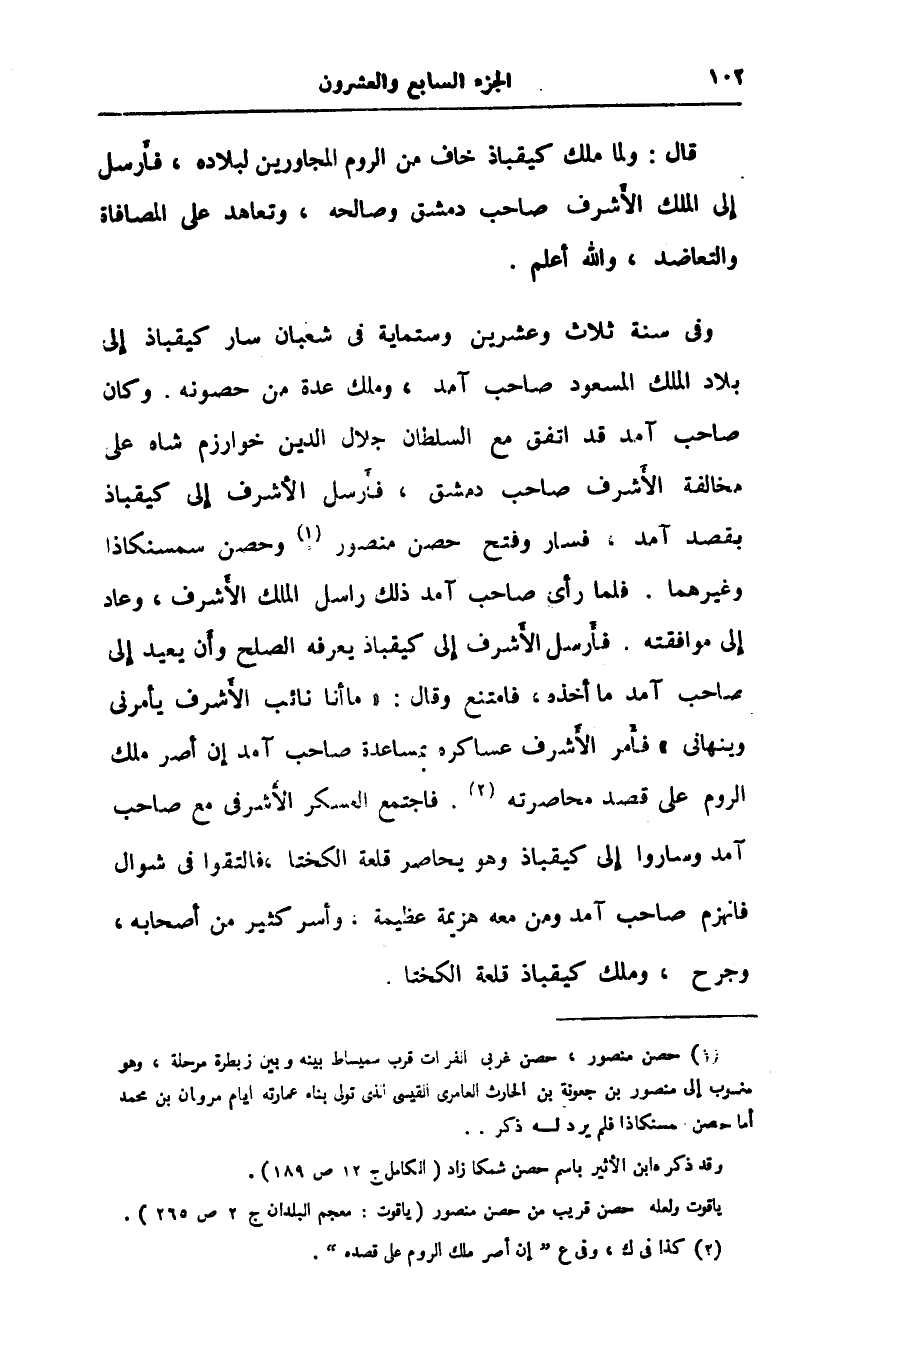 ١٠٢
الجزء السابع والعشرون
قال : ولما ملك كيقباذ خاف من الروم المجاورين لبلاده ، فأرسل
إلى الملك الأشرف صاحب دمشق وصالحه ، وتعاهد على المصافاة
والتعاضد ، والله أعلم .
وفى سنة ثلاث وعشرين وستماية فى شعبان سار كيقباذ إلى
بلاد الملك المسعود صاحب آمد ، وملك عدة من حصونه . وكان
صاحب آمد قد اتفق مع السلطان جلال الدين خوارزم شاه على
مخالفة الأشرف صاحب دمشق ، فأرسل الأشرف إلى كيقباذ
بقصد آمد ، فسار وفتح حصن منصور (١) وحصن سمسنكاذا
وغيرهما . فلما رأى صاحب آمد ذلك راسل الملك الأشرف ، وعاد
إلى موافقته . فأرسل الأشرف إلى كيقباذ يعرفه الصلح وأن يعيد إلى
صاحب آمد ما أخذه ، فامتنع وقال : « ماأنا نائب الأشرف يأمرنى
وينهانى » فأمر الأشرف عساكره بمساعدة صاحب آمد إن أصر ملك
الروم على قصد محاصرته (٢) . فاجتمع العسكر الأشرفى مع صاحب
آمد وساروا إلى كيقباذ وهو يحاصر قلعة الكختا ،فالتقوا فى شوال
فانهزم صاحب آمد ومن معه هزيمة عظيمة ، وأسر كثير من أصحابه ،
وجرح ، وملك كيقباذ قلعة الكختا .
(١) حصن منصور ، حصن غربى الفرات قرب سميساط بينه وبين زبطرة مرحلة ، وهو
منسوب إلى منصور بن جعونة بن الحارث العامرى القيسى الذى تولى بناء عمارته ايام مروان بن محمد
أما حصن مسنكاذا فلم يرد لـه ذكر . .
وقد ذكره ابن الأثير باسم حصن شمكا زاد ( الكامل ج ١٢ ص ١٨٩ ) .
ياقوت ولعله حصن قريب من حصن منصور ( ياقوت : معجم البلدان ج ٢ ص ٢٦٥ ) .
(٢) كذا فى ك ، وفى ع " إن أصر ملك الروم على قصده " .